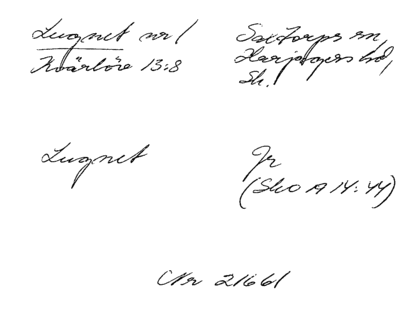 Lugnet nr 1
Saxtorps sn,
Kvärlöre 13:8
Harjagers hd,
Sk.
Lugnet
Jr
(SkO A 14:44)
Nr 21661